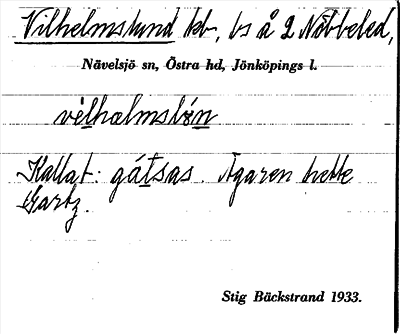 Vilhelmslund hb, bs å 2 Nöbbeled,
Nävelsjö sn, Östra hd, Jönköpings l.
vèlhælmslón
Kallat: gátsas. Ägaren hette
Gartz.
Stig Bäckstrand 1933.